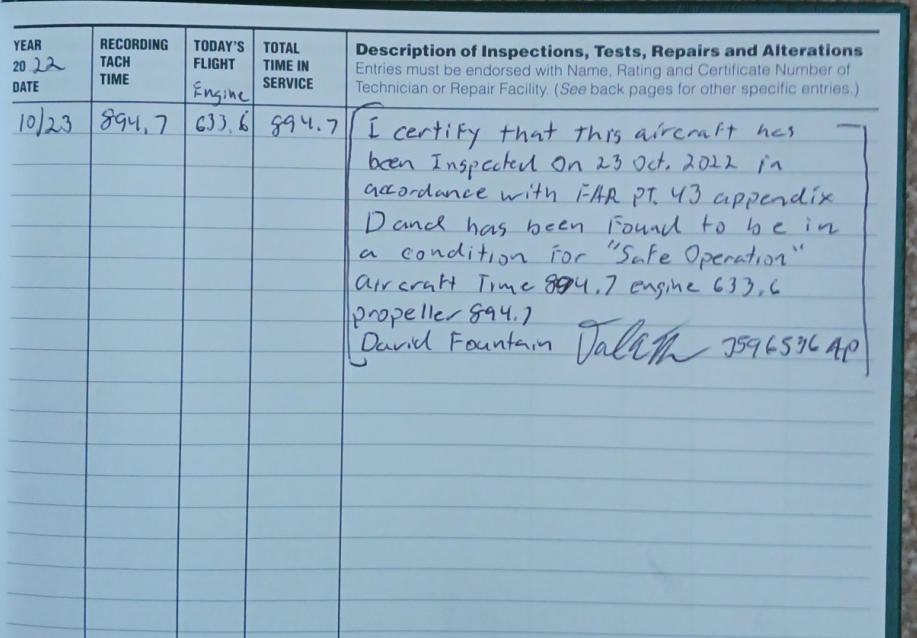 YEAR
20 22
DATE
RECORDING
TACH
TIME
TODAY'S
FLIGHT
Engine
TOTAL
TIME IN
SERVICE
Description of Inspections, Tests, Repairs and Alterations
Entries must be endorsed with Name, Rating and Certificate Number of
Technician or Repair Facility. (See back pages for other specific entries.)
10/23 894.7 633.6 894.7
I certify that this aircraft has
been Inspected on 23 Oct. 2022 in
accordance with FAR PT. 43 appendix
D and has been found to be in
a condition for "Safe Operation"
aircraft Time 894.7 engine 633.6
propeller 894.7
David Fountain AP